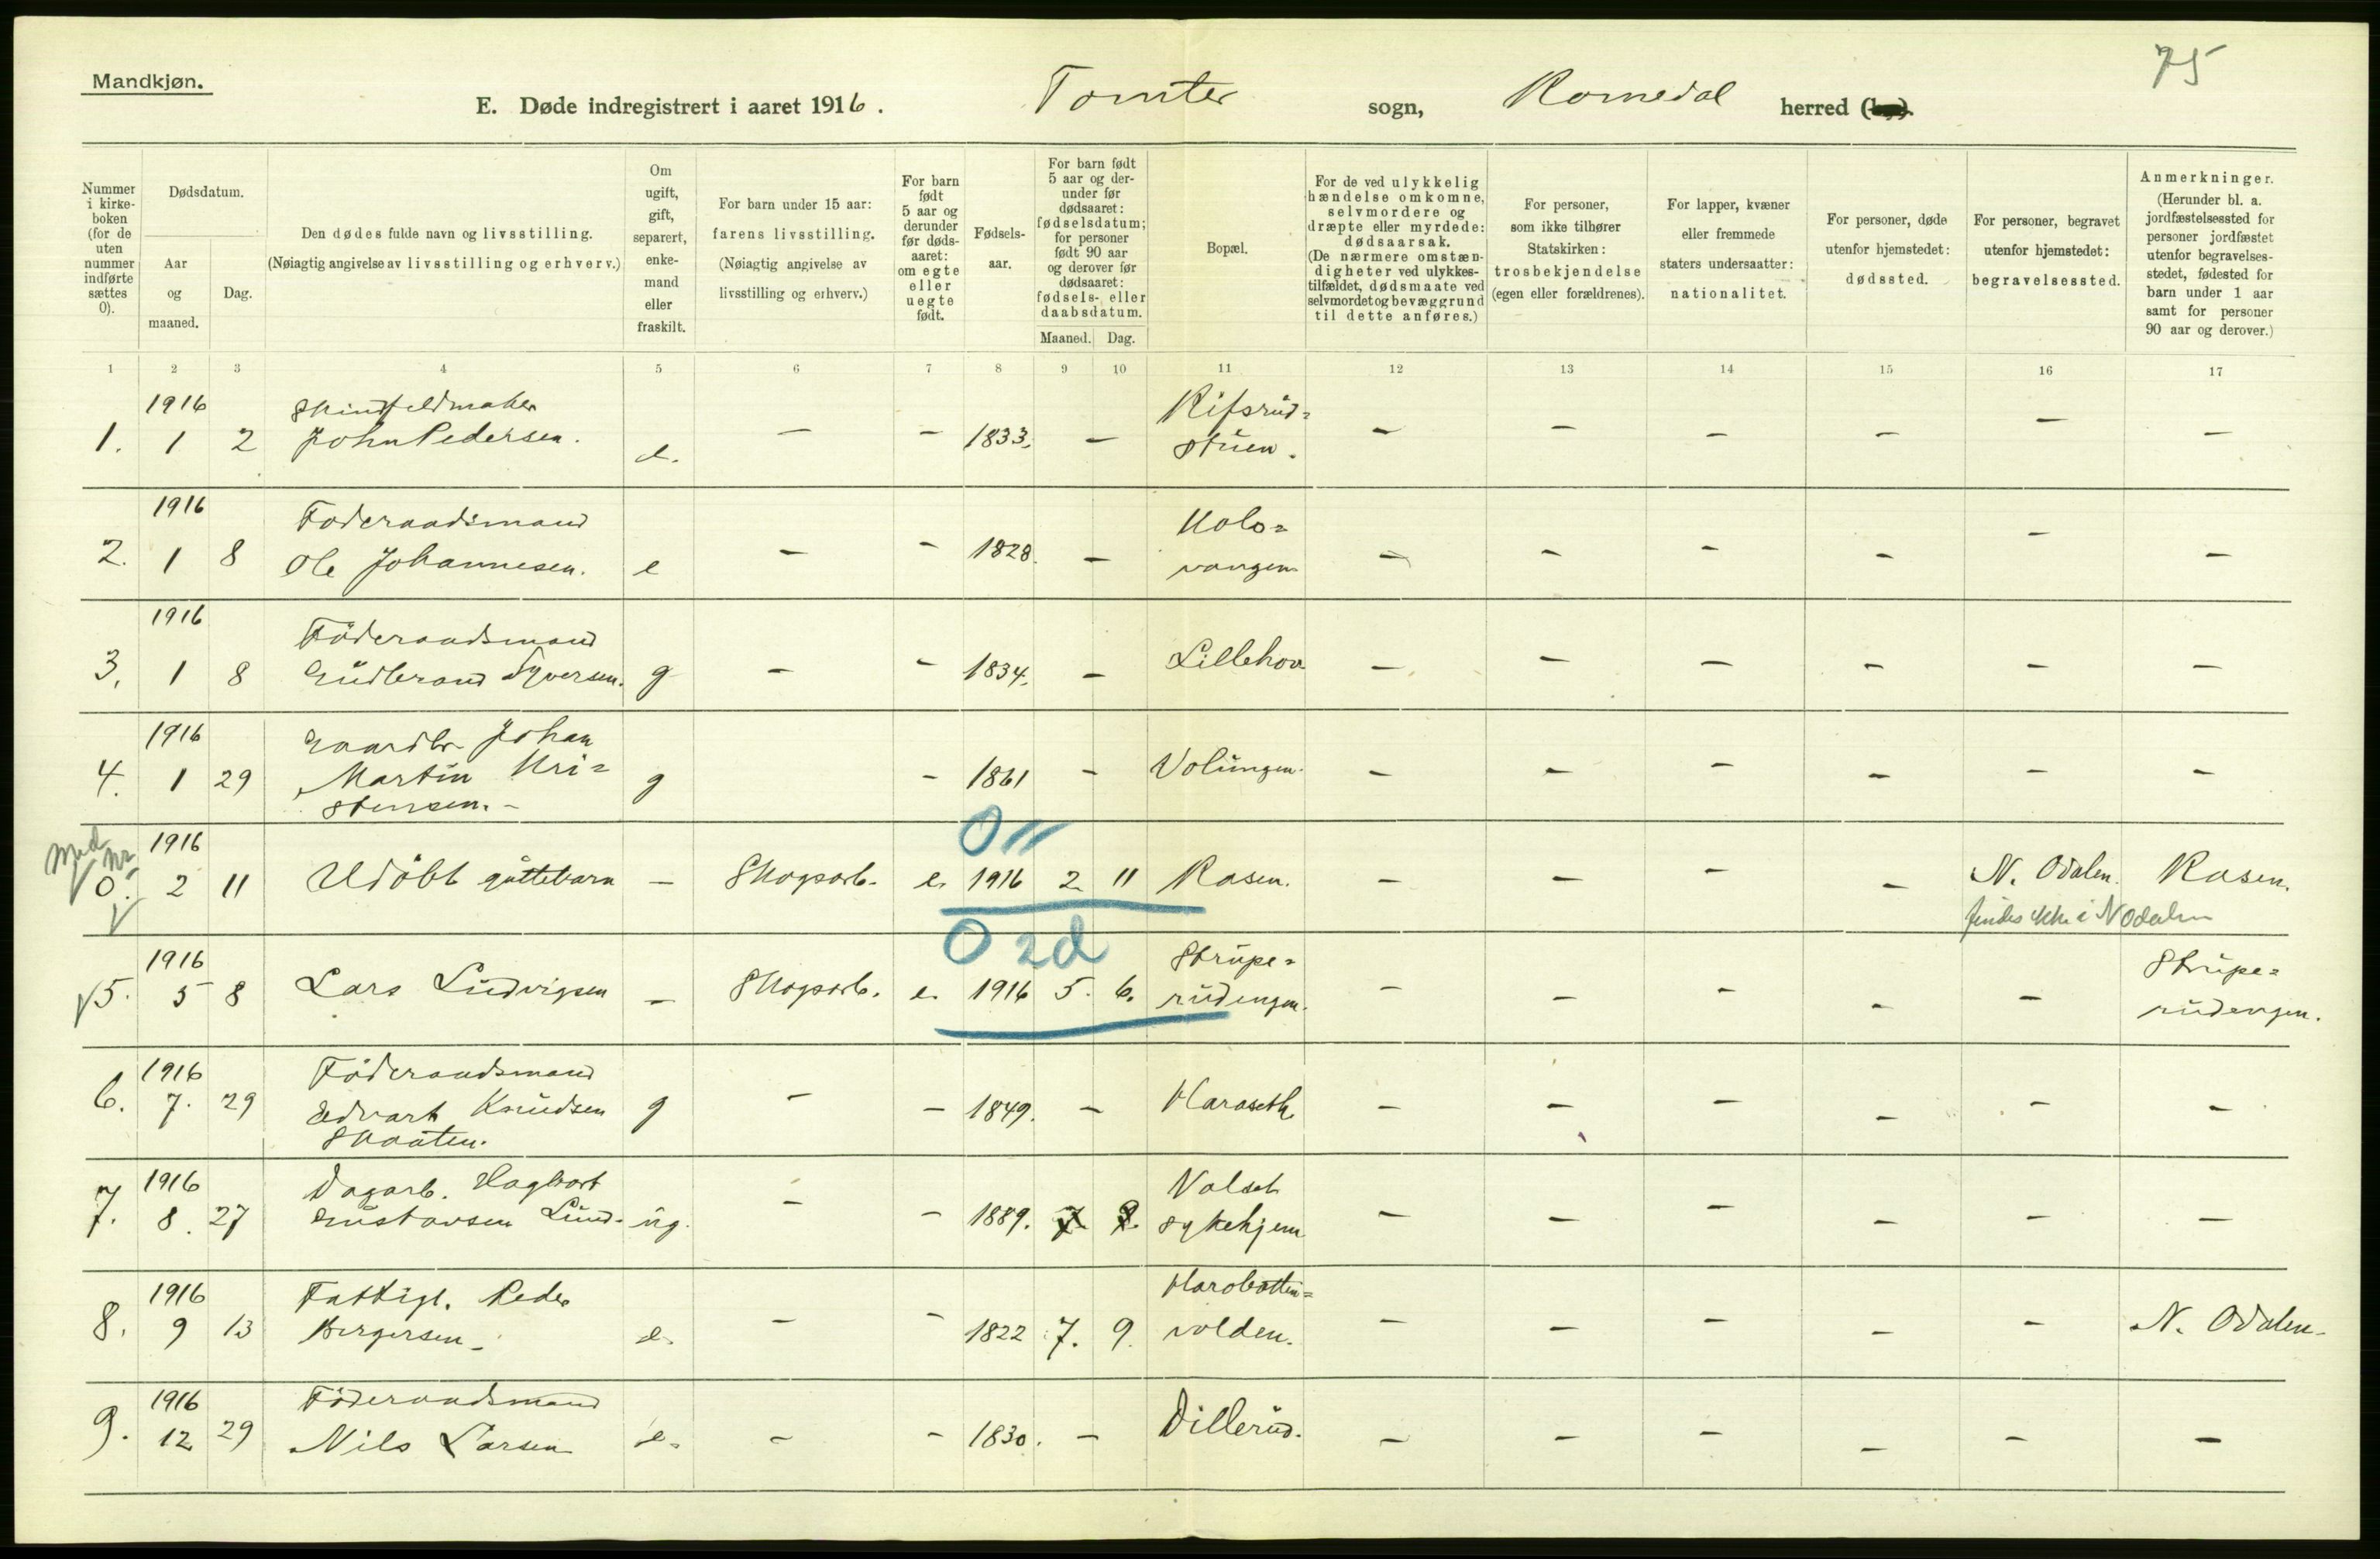 75
Mandkjøn.
E. Døde indregistrert i aaret 1916. Tomter sogn, Romedal herred (by).
Nummer i kirke-boken (for de uten nummer indførte sættes 0).
Dødsdatum.
Aar og maaned.
Dag.
Den dødes fulde navn og livsstilling.
(Nøiagtig angivelse av livsstilling og erhverv.)
Om ugift, gift, separert, enke-mand eller fraskilt.
For barn under 15 aar: farens livsstilling.
(Nøiagtig angivelse av livsstilling og erhverv.)
For barn født 5 aar og derunder før døds-aaret: om egte eller uegte født.
Fødsels-aar.
For barn født 5 aar og der-under før dødsaaret: fødselsdatum; for personer født 90 aar og derover før dødsaaret: fødsels- eller daabsdatum.
Maaned. Dag.
Bopæl.
For de ved ulykkelig hændelse omkomne, selvmordere og dræpte eller myrdede: dødsaarsak.
(De nærmere omstæn-digheter ved ulykkes-tilfældet, dødsmaate ved selvmordet og bevæggrund til dette anføres.)
For personer, som ikke tilhører Statskirken: trosbekjendelse (egen eller forældrenes).
For lapper, kvæner eller fremmede staters undersaatter: nationalitet.
For personer, døde utenfor hjemstedet: dødssted.
For personer, begravet utenfor hjemstedet: begravelsessted.
Anmerkninger.
(Herunder bl. a. jordfæstelsessted for personer jordfæstet utenfor begravelses-stedet, fødested for barn under 1 aar samt for personer 90 aar og derover.)
1 2 3 4 5 6 7 8 9 10 11 12 13 14 15 16 17
1916 Skindfeldmaker Rifsrud=
1. 1 2 John Pedersen. e. – – 1833. – stuen. – – – – – –
1916 Foderaadsmand Kolo=
2. 1 8 Ole Johannesen. e – – 1828. – vangen – – – – – –
1916 Föderaadsmand
3. 1 8 Gudbrand Syversen. g – – 1834. – Lillehov – – – – – –
1916 Gaardbr. Johan
4. 1 29 Martin Kri= g – 1861 – Volungen. – – – – – –
stensen. –
Med nr. 1916 O 11
0. 2 11 Udöbt guttebarn – Skogsarb. e. 1916 2 11 Rosen. – – – – N. Odalen. Rosen.
findes ikke i N Odalen
1916 O 2d Strupe= Strupe=
5. 5 8 Lars Ludvigsen – Skogsarb. e. 1916 5. 6. rudengen. – – – – – rudengen.
1916 Föderaadsmand
6. 7. 29 Edvart Knudsen g – – 1849. – Haraseth – – – – – –
Skaaten.
1916 Dagarb. Hagbart Valset
7. 8. 27 Gustavsen Lund. ug. – – 1889. 7 8. sykehjem – – – – – –
1916 Fattigl. Peder
8. 9 13 Bergersen – e. – – 1822 7. 9. volden. – – – – – N. Odalen.
1916 Föderaadsmand
9. 12 29 Nils Larsen e. – – 1830. – Dillerud. – – – – – –